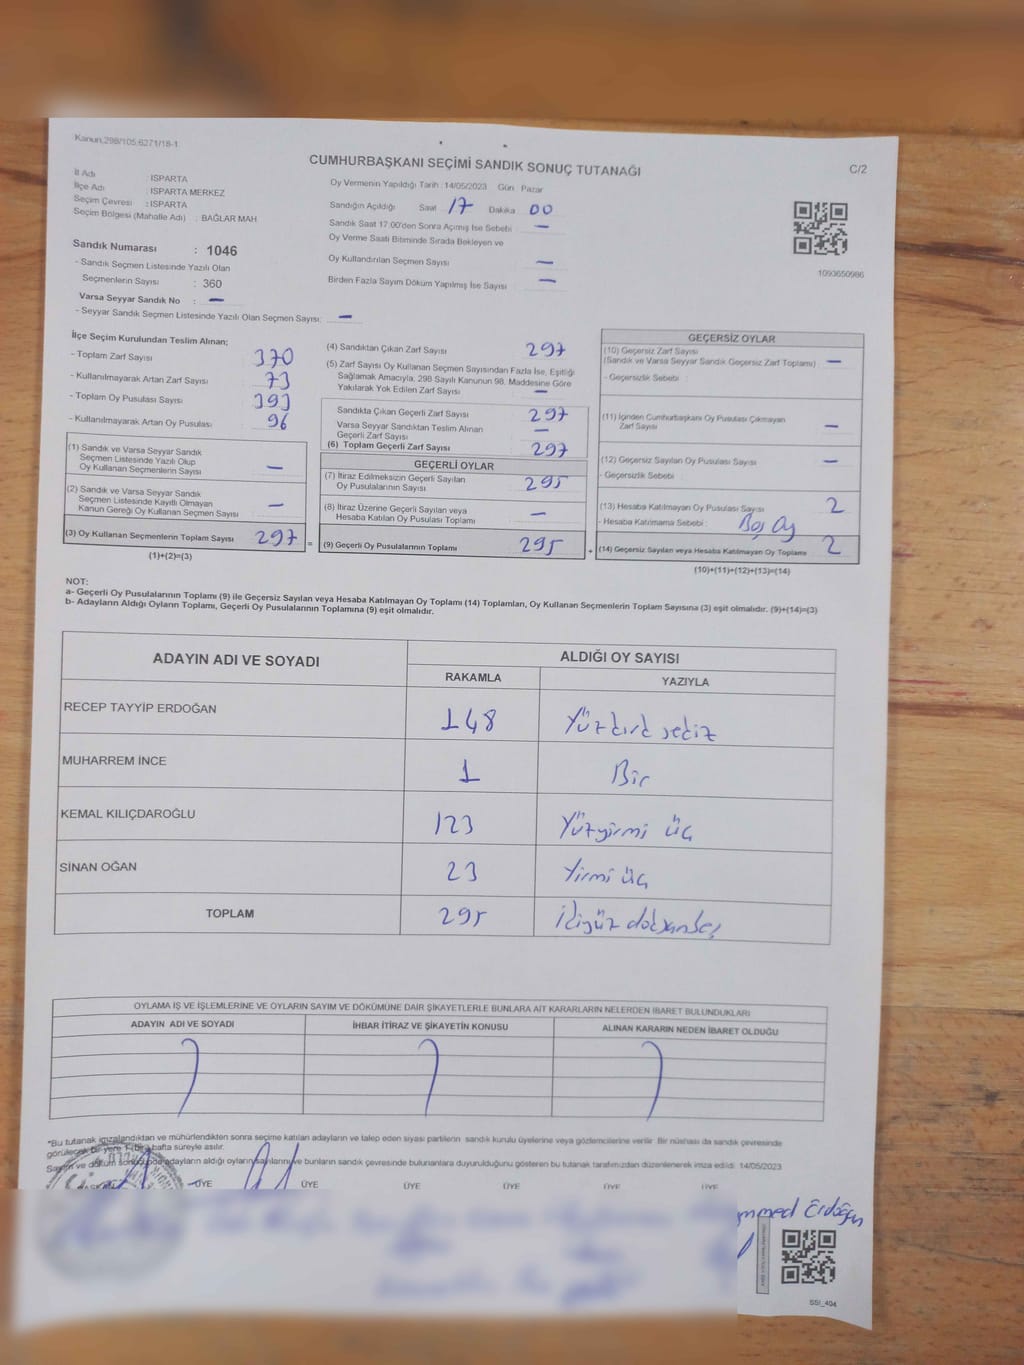 Kanun,298/105,6271/18-1
CUMHURBAŞKANI SEÇİMİ SANDIK SONUÇ TUTANAĞI
C/2
İl Adı : ISPARTA
İlçe Adı : ISPARTA MERKEZ
Seçim Çevresi : ISPARTA
Seçim Bölgesi (Mahalle Adı) : BAĞLAR MAH
Sandık Numarası : 1046
- Sandık Seçmen Listesinde Yazılı Olan
Seçmenlerin Sayısı : 360
Varsa Seyyar Sandık No : —
- Seyyar Sandık Seçmen Listesinde Yazılı Olan Seçmen Sayısı: —
Oy Vermenin Yapıldığı Tarih : 14/05/2023 Gün Pazar
Sandığın Açıldığı Saat 17 Dakika 00
Sandık Saat 17:00'den Sonra Açımış İse Sebebi : —
Oy Verme Saati Bitiminde Sırada Bekleyen ve
Oy Kullandırılan Seçmen Sayısı —
Birden Fazla Sayım Döküm Yapılmış İse Sayısı : —
1093650986
İlçe Seçim Kurulundan Teslim Alınan;
- Toplam Zarf Sayısı 370
- Kullanılmayarak Artan Zarf Sayısı : 73
- Toplam Oy Pusulası Sayısı 393
- Kullanılmayarak Artan Oy Pusulası : 96
(1) Sandık ve Varsa Seyyar Sandık
Seçmen Listesinde Yazılı Olup
Oy Kullanan Seçmenlerin Sayısı —
(2) Sandık ve Varsa Seyyar Sandık
Seçmen Listesinde Kayıtlı Olmayan
Kanun Gereği Oy Kullanan Seçmen Sayısı —
(3) Oy Kullanan Seçmenlerin Toplam Sayısı 297
(1)+(2)=(3)
=
(4) Sandıktan Çıkan Zarf Sayısı 297
(5) Zarf Sayısı Oy Kullanan Seçmen Sayısından Fazla İse, Eşitliği
Sağlamak Amacıyla, 298 Sayılı Kanunun 98. Maddesine Göre
Yakılarak Yok Edilen Zarf Sayısı —
Sandıkta Çıkan Geçerli Zarf Sayısı 297
Varsa Seyyar Sandıktan Teslim Alınan
Geçerli Zarf Sayısı —
(6) Toplam Geçerli Zarf Sayısı 297
GEÇERLİ OYLAR
(7) İtiraz Edilmeksizin Geçerli Sayılan
Oy Pusulalarının Sayısı 295
(8) İtiraz Üzerine Geçerli Sayılan veya
Hesaba Katılan Oy Pusulası Toplamı —
(9) Geçerli Oy Pusulalarının Toplamı 295
+
GEÇERSİZ OYLAR
(10) Geçersiz Zarf Sayısı
(Sandık ve Varsa Seyyar Sandık Geçersiz Zarf Toplamı) —
- Geçersizlik Sebebi :
(11) İçinden Cumhurbaşkanı Oy Pusulası Çıkmayan
Zarf Sayısı —
(12) Geçersiz Sayılan Oy Pusulası Sayısı —
- Geçersizlik Sebebi :
(13) Hesaba Katılmayan Oy Pusulası Sayısı 2
- Hesaba Katılmama Sebebi : Boş Oy
(14) Geçersiz Sayılan veya Hesaba Katılmayan Oy Toplamı 2
(10)+(11)+(12)+(13)=(14)
NOT:
a- Geçerli Oy Pusulalarının Toplamı (9) ile Geçersiz Sayılan veya Hesaba Katılmayan Oy Toplamı (14) Toplamları, Oy Kullanan Seçmenlerin Toplam Sayısına (3) eşit olmalıdır. (9)+(14)=(3)
b- Adayların Aldığı Oyların Toplamı, Geçerli Oy Pusulalarının Toplamına (9) eşit olmalıdır.
ADAYIN ADI VE SOYADI ALDIĞI OY SAYISI
RAKAMLA YAZIYLA
RECEP TAYYİP ERDOĞAN 148 Yüzkırk sekiz
MUHARREM İNCE 1 Bir
KEMAL KILIÇDAROĞLU 123 Yüzyirmi üç
SİNAN OĞAN 23 Yirmi üç
TOPLAM 295 ikiyüz doksanbeş
OYLAMA İŞ VE İŞLEMLERİNE VE OYLARIN SAYIM VE DÖKÜMÜNE DAİR ŞİKAYETLERLE BUNLARA AİT KARARLARIN NELERDEN İBARET BULUNDUKLARI
ADAYIN ADI VE SOYADI İHBAR İTİRAZ VE ŞİKAYETİN KONUSU ALINAN KARARIN NEDEN İBARET OLDUĞU
*Bu tutanak imzalandıktan ve mühürlendikten sonra seçime katılan adayların ve talep eden siyasi partilerin sandık kurulu üyelerine veya gözlemcilerine verilir. Bir nüshası da sandık çevresinde
görülecek bir yere 1 (bir) hafta süreyle asılır.
Sayım ve döküm sonucunda adayların aldığı oyların sayılarını ve bunların sandık çevresinde bulunanlara duyurulduğunu gösteren bu tutanak tarafımızdan düzenlenerek imza edildi. 14/05/2023
ÜYE ÜYE ÜYE ÜYE ÜYE ÜYE
mmed Erdoğan
SSI_404